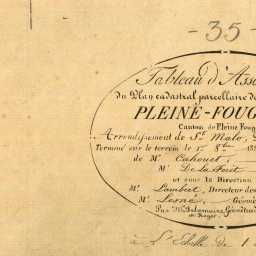 - 35 -
Tableau d'Ass
du Plan cadastral parcellaire de
PLEINE-FOUG
Canton de Pleine Foug
Arrondissement de St. Malo,
Terminé sur le terrain le 1er 8bre 18
de Mr. Cahouet,
Mr. De La Forêt
et sous la Direction
Mr. Lambert, Directeur des
Mr. Lesné, Géom
Par Mr. Delamaire Géomètre
à l'Echelle de 1